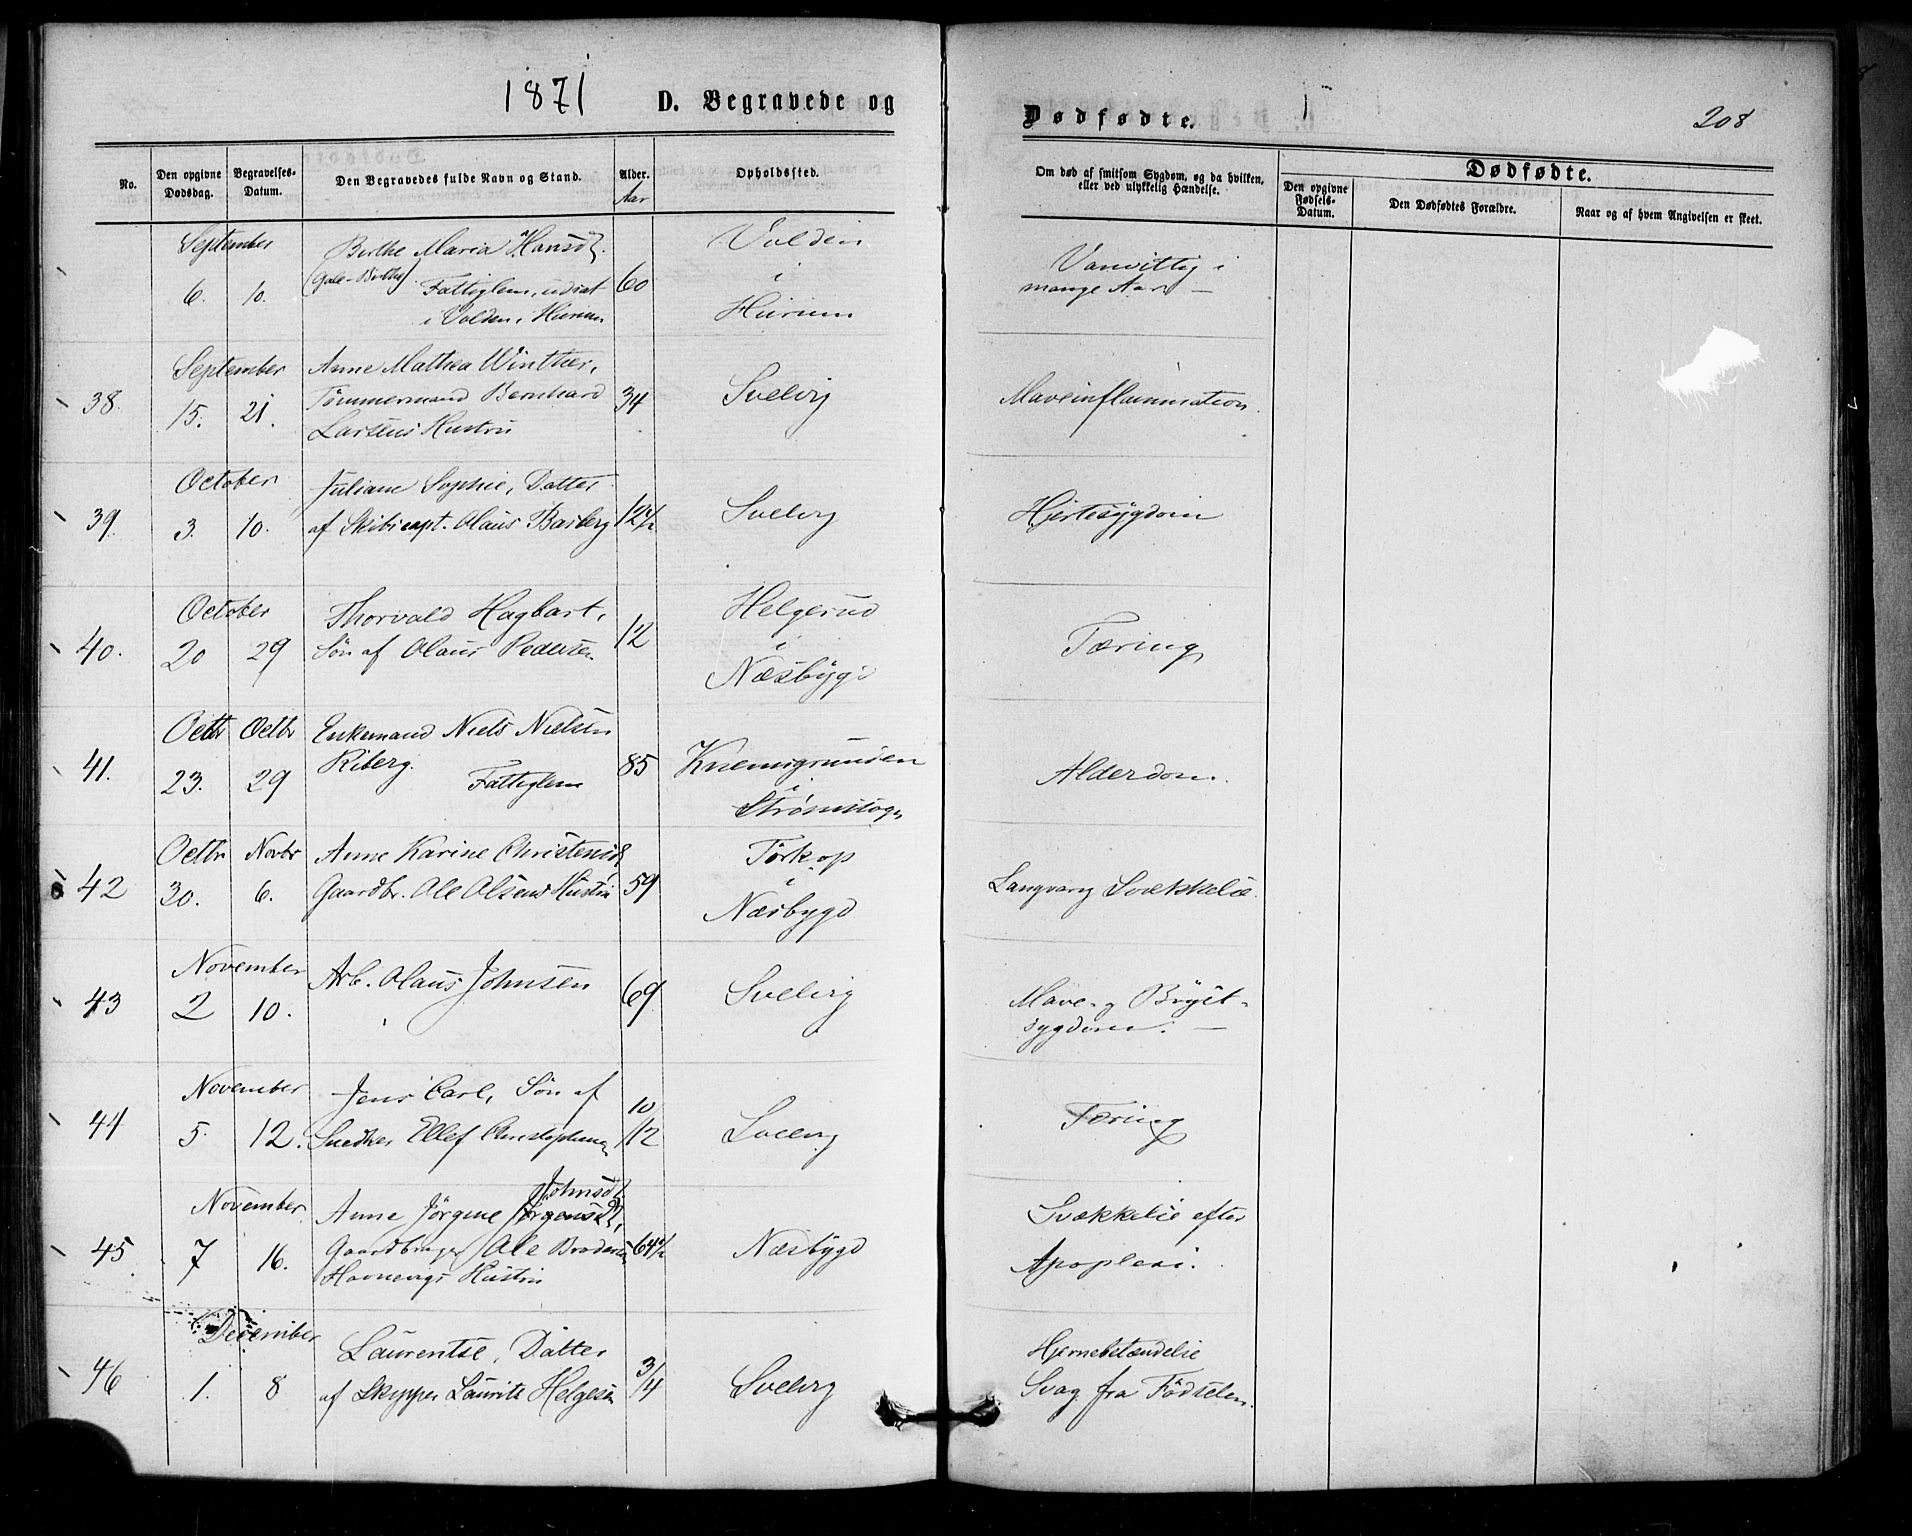 1871 D. Begravede og
Dødfødte.
208
No.
Den opgivne Dødsdag.
Begravelses-Datum.
Den Begravedes fulde Navn og Stand.
Alder.
Aar
Opholdssted.
Om død af smitsom Sygdom, og da hvilken,
eller ved ulykkelig Hændelse.
Dødfødte.
Den opgivne Fødsels-Datum.
Den Dødfødtes Forældre.
Naar og af hvem Angivelsen er skeet.
September
6. 10.
Birthe Maria Hansd.
(Gale-Birthe) Fattiglem, udsat
i Volden i Hurum
60
Volden
i
Hurum
Vanvittig i
mange Aar –
38.
September
15. 21.
Anne Mathea Winther,
Tömmermand Bernhard
Larsens Hustru
34
Svelvig
Maveinflammation.
39.
October
3. 10.
Juliane Sophie, Datter
af Skibscapt. Olaus Barberg
12 1/2
Svelvig
Hjertesygdom
40.
October
20 29
Thorvald Hagbart,
Søn af Olaus Pedersen
12
Helgerud
i
Næsbygd
Tæring
41.
Octbr Octbr
23. 29
Enkemand Niels Nielsen
Riberg. Fattiglem
85
Knemsgrunden
i
Strømslag
Alderdom.
42
Octbr Novbr
30. 6.
Anne Karine Christensd.
Gaardbr. Ole Olsens Hustru
59
Törkop
i
Næsbygd
Langvarig Svækkelse.
43
November
2 10.
Arb. Olaus Johnsen
69
Svelvig
Mave- og Bryst-
sygdom. –
44
November
5. 12.
Jens Carl, Søn af
Snedker Ellef Christophersen
10/12
Svelvig
Tæring
45.
November
7 16.
Johnsd.
Anne Jörgine Jörgensd.,
Gaardbruger Ole Brodersen
Havnevigs Hustru
64 1/2
Næsbygd
Svækkelse efter
Apoplexi.
46
December
1. 8
Laurentse, Datter
af Skipper Laurits Helgesen
3/4
Svelvig
Hjernebetændelse
Svag fra Fødselen.